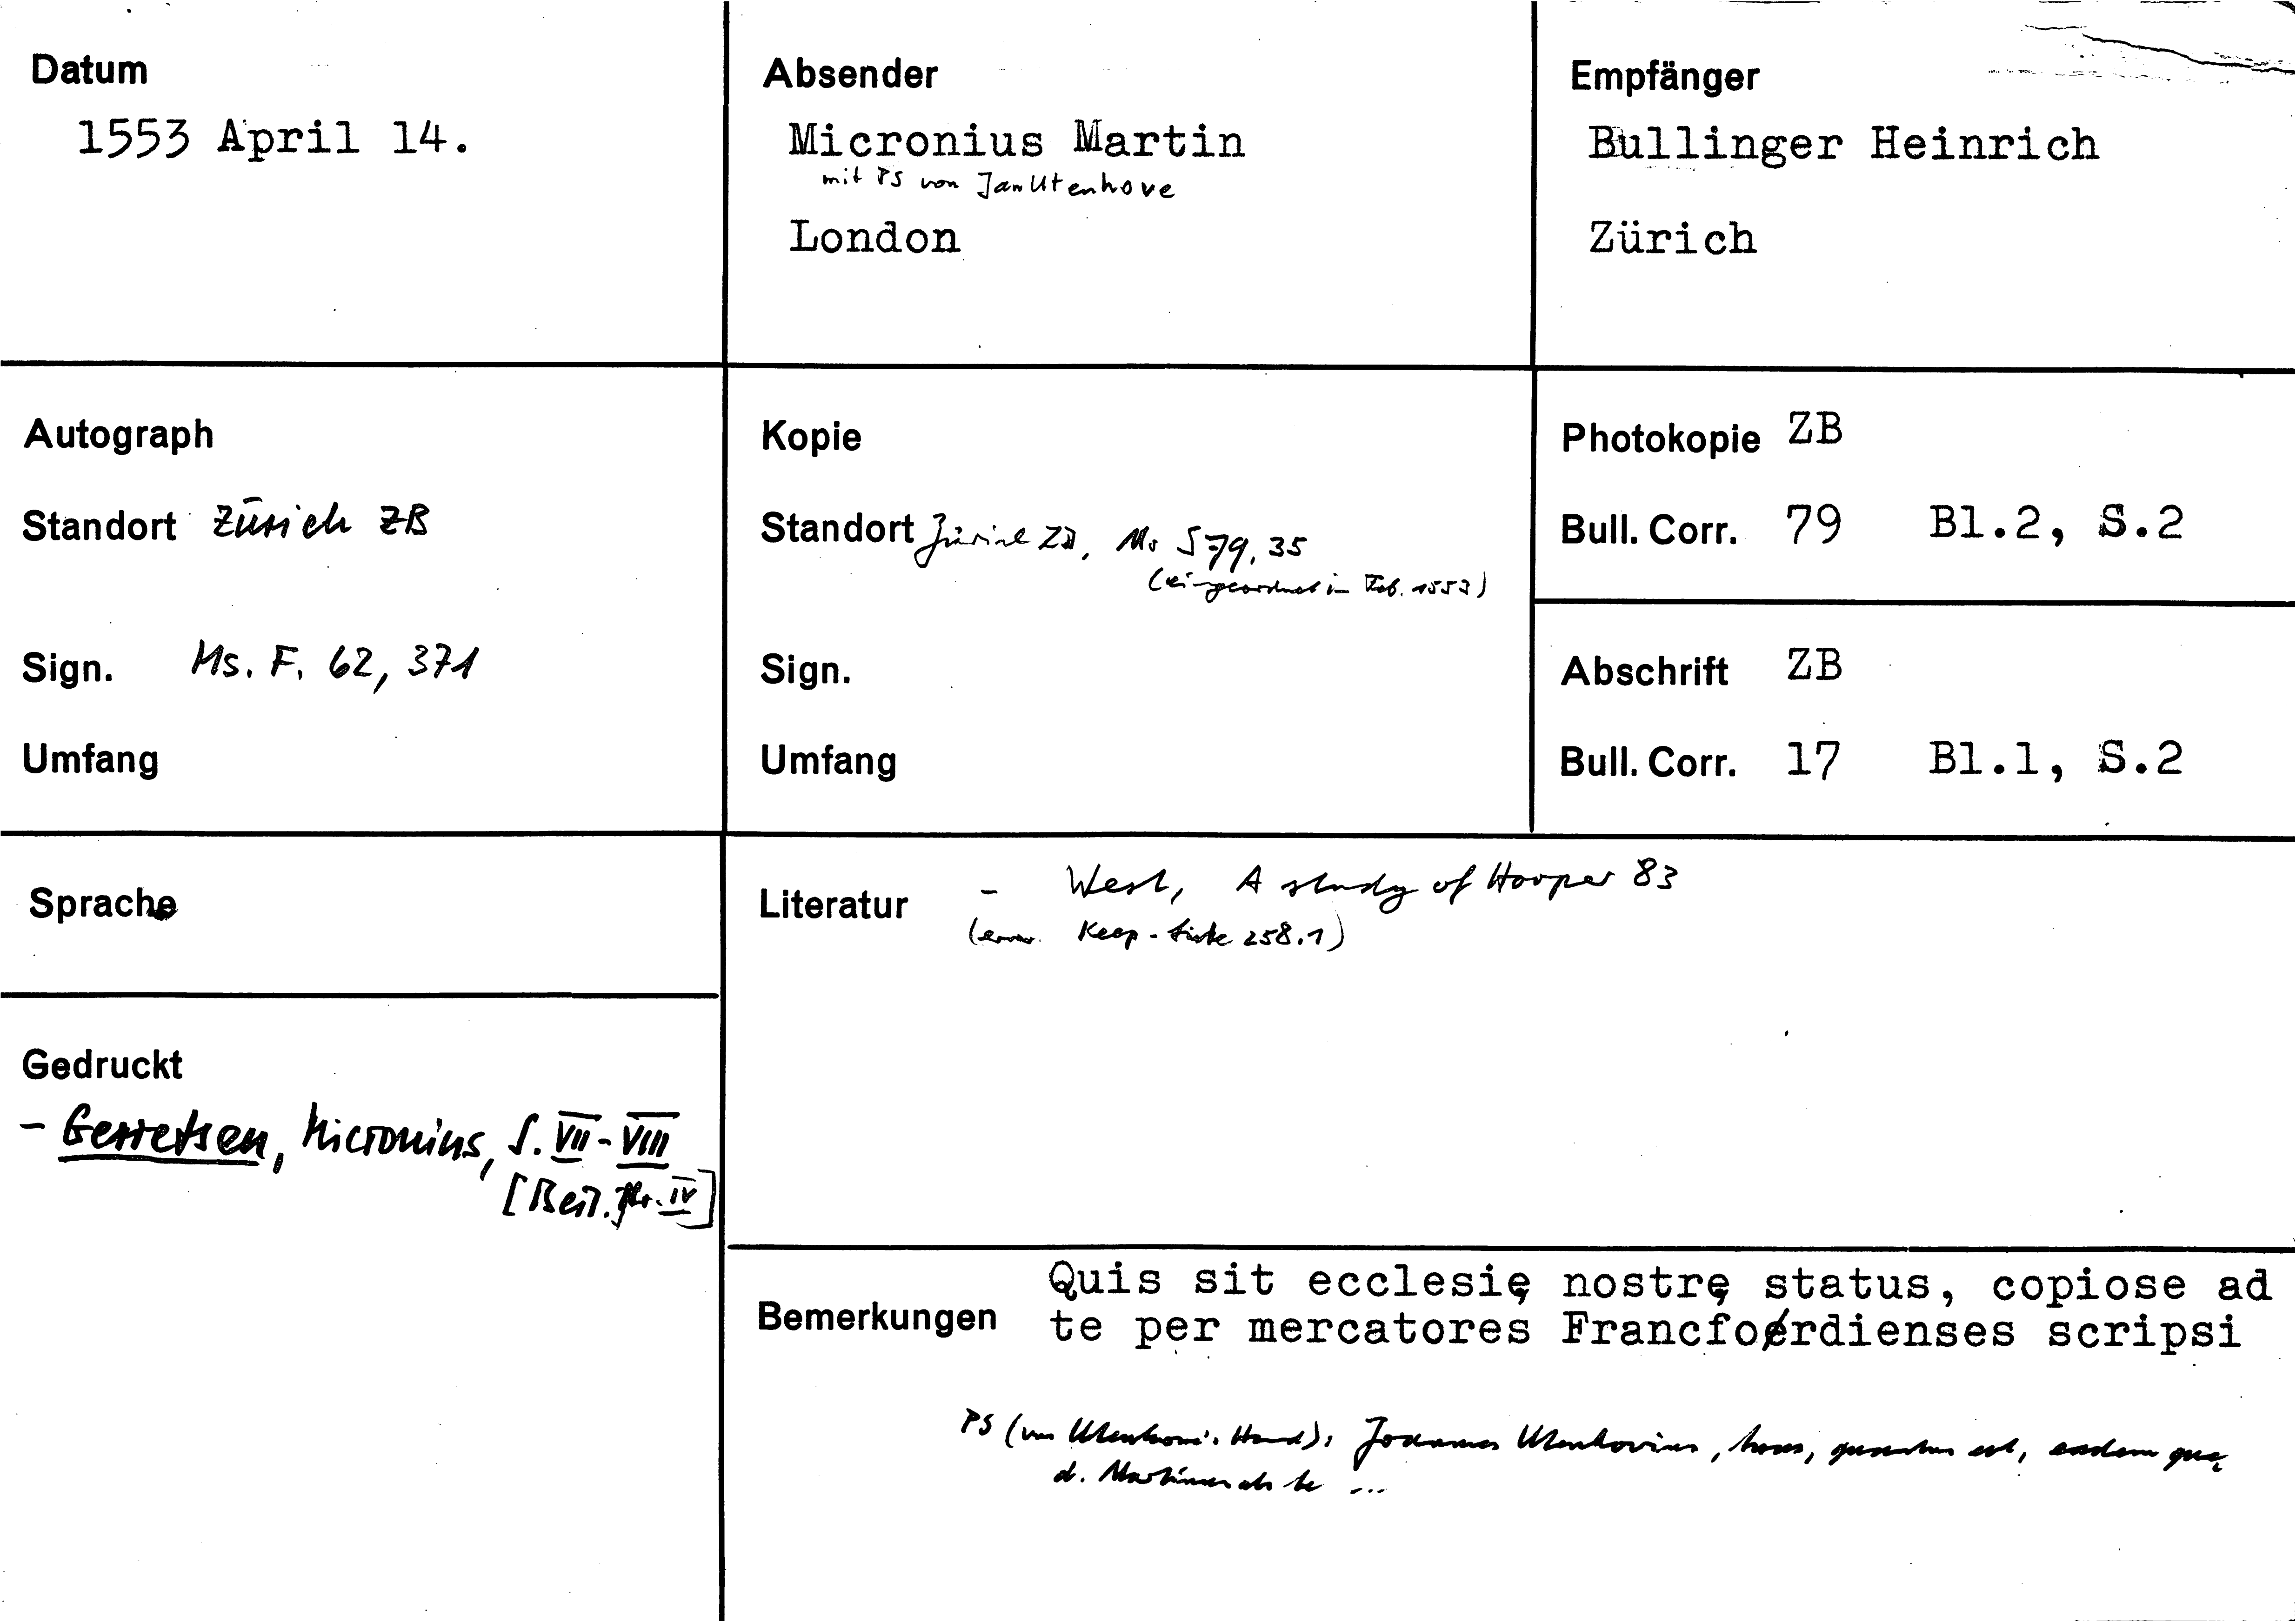 Datum
1553 April 14.
Absender
Micronius Martin
mit PS von Jan Utenhove
London
Empfänger
Bullinger Heinrich
Zürich
Autograph
Standort Zürich ZB
Sign. Ms. F. 62, 371
Umfang
Kopie
Standort Zürich ZB, Ms S 79, 35
(eingeordnet in Feb. 1553)
Sign.
Umfang
Photokopie ZB
Bull. Corr. 79 Bl.2, S.2
Abschrift ZB
Bull. Corr. 17 Bl.1, S.2
Sprache
Literatur - West, A study of Hooper 83
Keep-Liste 258.1)
Gedruckt
- Gerretsen, Micronius, S. VII-VIII
[Beil. Nr. IV]
Bemerkungen
Quis sit ecclesię nostrę status, copiose ad
te per mercatores Francfordienses scripsi
PS (von Utenhovs Hand): Joannes Utenhovius, tuus, quantus est, eadem quę
d. Martinus abs te ...